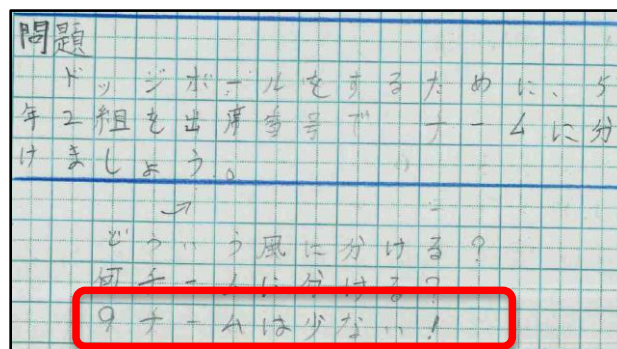 問題
ドッジボールをするために、5
年2組を出席番号で チームに分
けましょう。
どういう風に分ける?
何チームに分ける?
9チームは少ない!